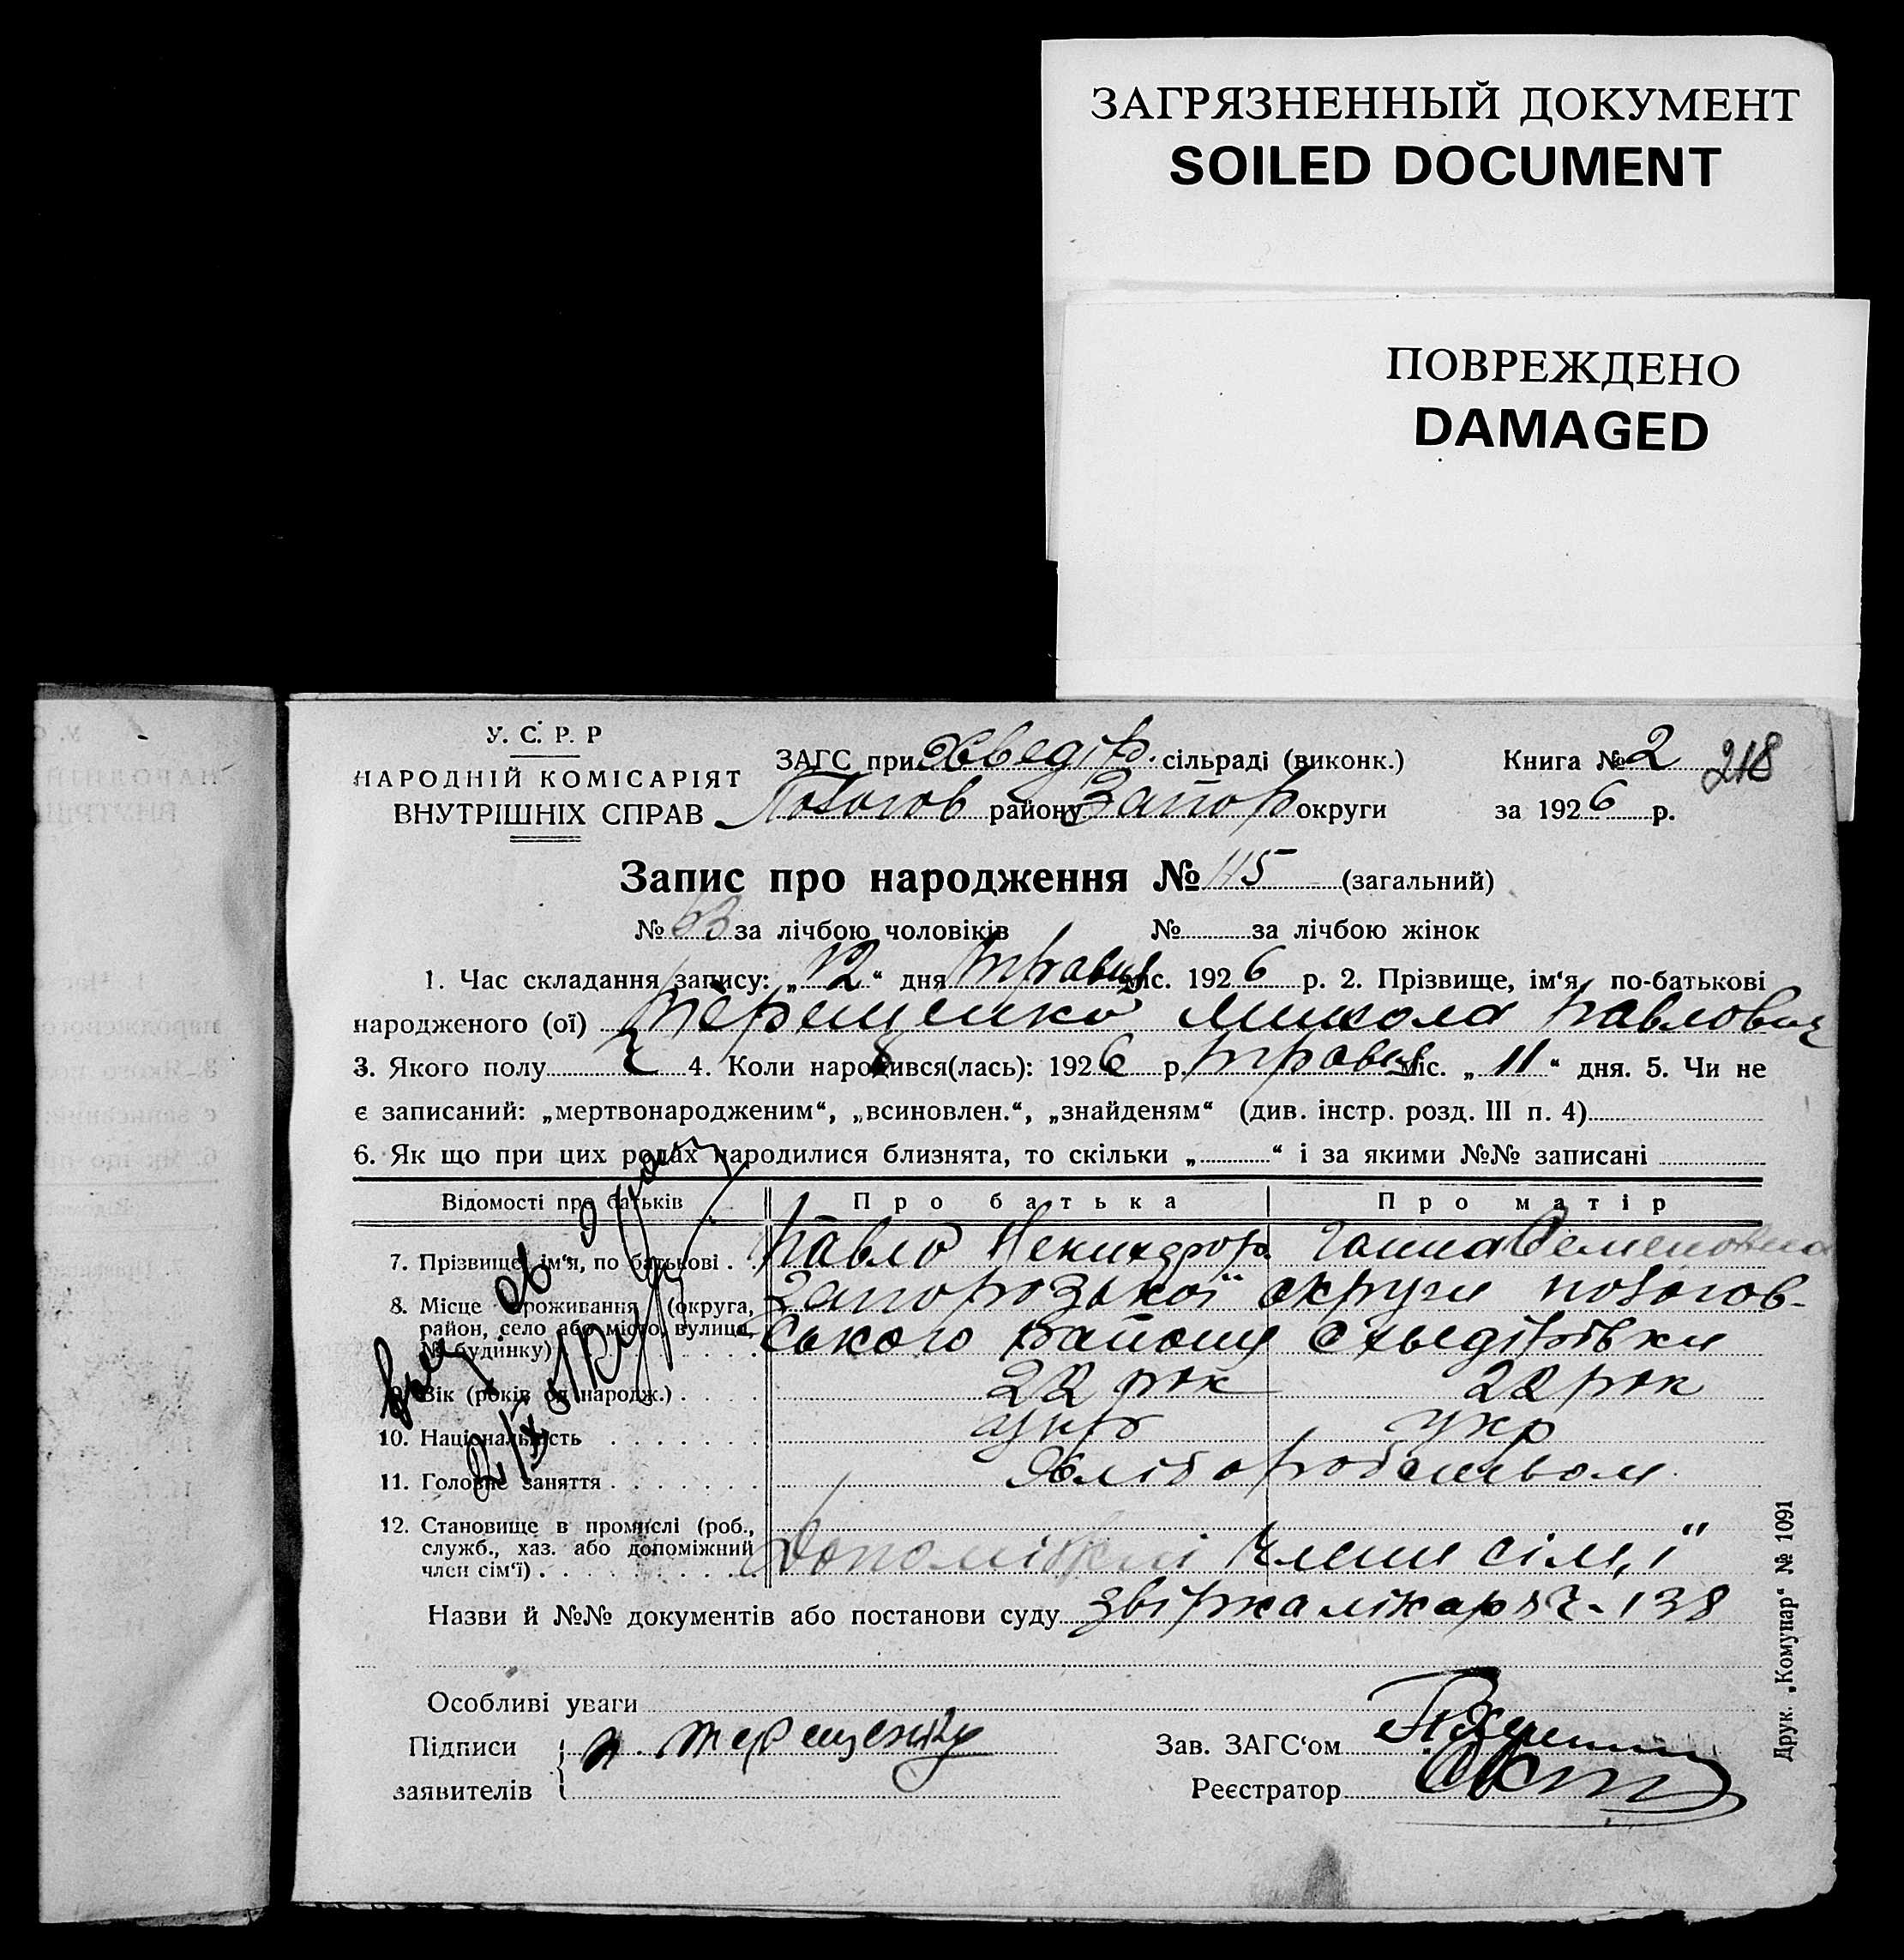 ЗАГРЯЗНЕННЫЙ ДОКУМЕНТ
SOILED DOCUMENT
ПОВРЕЖДЕНО
DAMAGED
У. С. Р. Р
НАРОДНІЙ КОМІСАРІЯТ
ВНУТРІШНІХ СПРАВ
ЗАГС при Хведір. сільраді (виконк.)
Пологов району Запор округи
Книга № 2 218
за 1926 р.
Запис про народження № 115 (загальний)
№ 63 за лічбою чоловіків № за лічбою жінок
1. Час складання запису: „12“ дня травня міс. 1926 р. 2. Прізвище, ім‘я, по-батькові
народженого (ої) Терещенко Микола Павлович
3. Якого полу ч 4. Коли народився(лась): 1926 р. травня міс. „11“ дня. 5. Чи не
є записаний: „мертвонародженим“, „всиновлен.“, „знайденям“ (див. інстр. розд. III п. 4)
6. Як що при цих родах народилися близнята, то скільки „ “ і за якими №№ записані
Відомості про батьків Про батька Про матір
7. Прізвище, ім‘я, по батькові . . Павло Некихдрор. Ганна Семеновна
8. Місце проживання (округа, Запорозької округи пологов-
район, село або місто, вулиця, ського району с Хведірівки
№ будинку)
9. Вік (років од народж.) . . . . 22 рок 22 рок
10. Національність . . . . . . . укр укр
11. Головне заняття . . . . . . . Хліборобством
12. Становище в промислі (роб.,
служб., хаз. або допоміжний Допоміжні члени сім,ї"
член сім‘ї) . . . . . . . . .
Назви й №№ документів або постанови суду звірка лікаря ч. 138
Особливі уваги
Підписи п. терещенко Зав. ЗАГС‘ом
заявителів Реєстратор
Друк. „Комунар“ № 1091